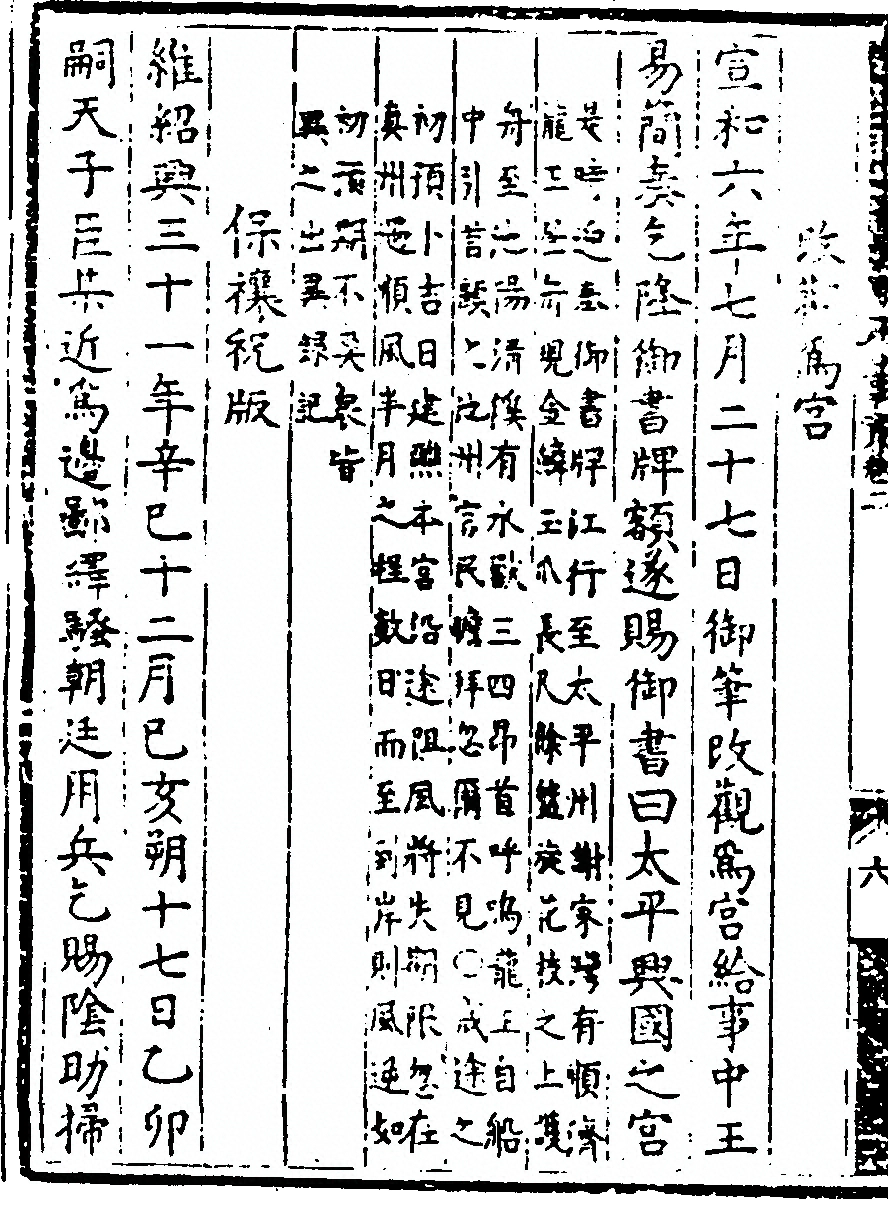 事實卷二
六
改觀爲宮
宣和六年七月二十七日御筆改觀爲宮給事中王
易簡奏乞降御書牌額遂賜御書曰太平興國之宮
是時迎奉御書牌江行至太平州謝家灣有順濟
龍王並舟現金鱗玉爪長尺餘盤旋花枝之上護
舟至池陽清溪有水獸三四昂首呼嗚龍王自船
中引首頷之池州官民瞻拜忽爾不見○途之
初預卜吉日建醮本宮沿途阻風將失期限忽在
真州遇順風半月之程數日而至到岸則風逆如
初期不爽衆皆
異之出異錄記
保禳祝版
維紹興三十一年辛巳十二月巳亥朔十七日乙卯
嗣天子臣某近爲邊鄙繹騷朝廷用兵乞賜陰助掃